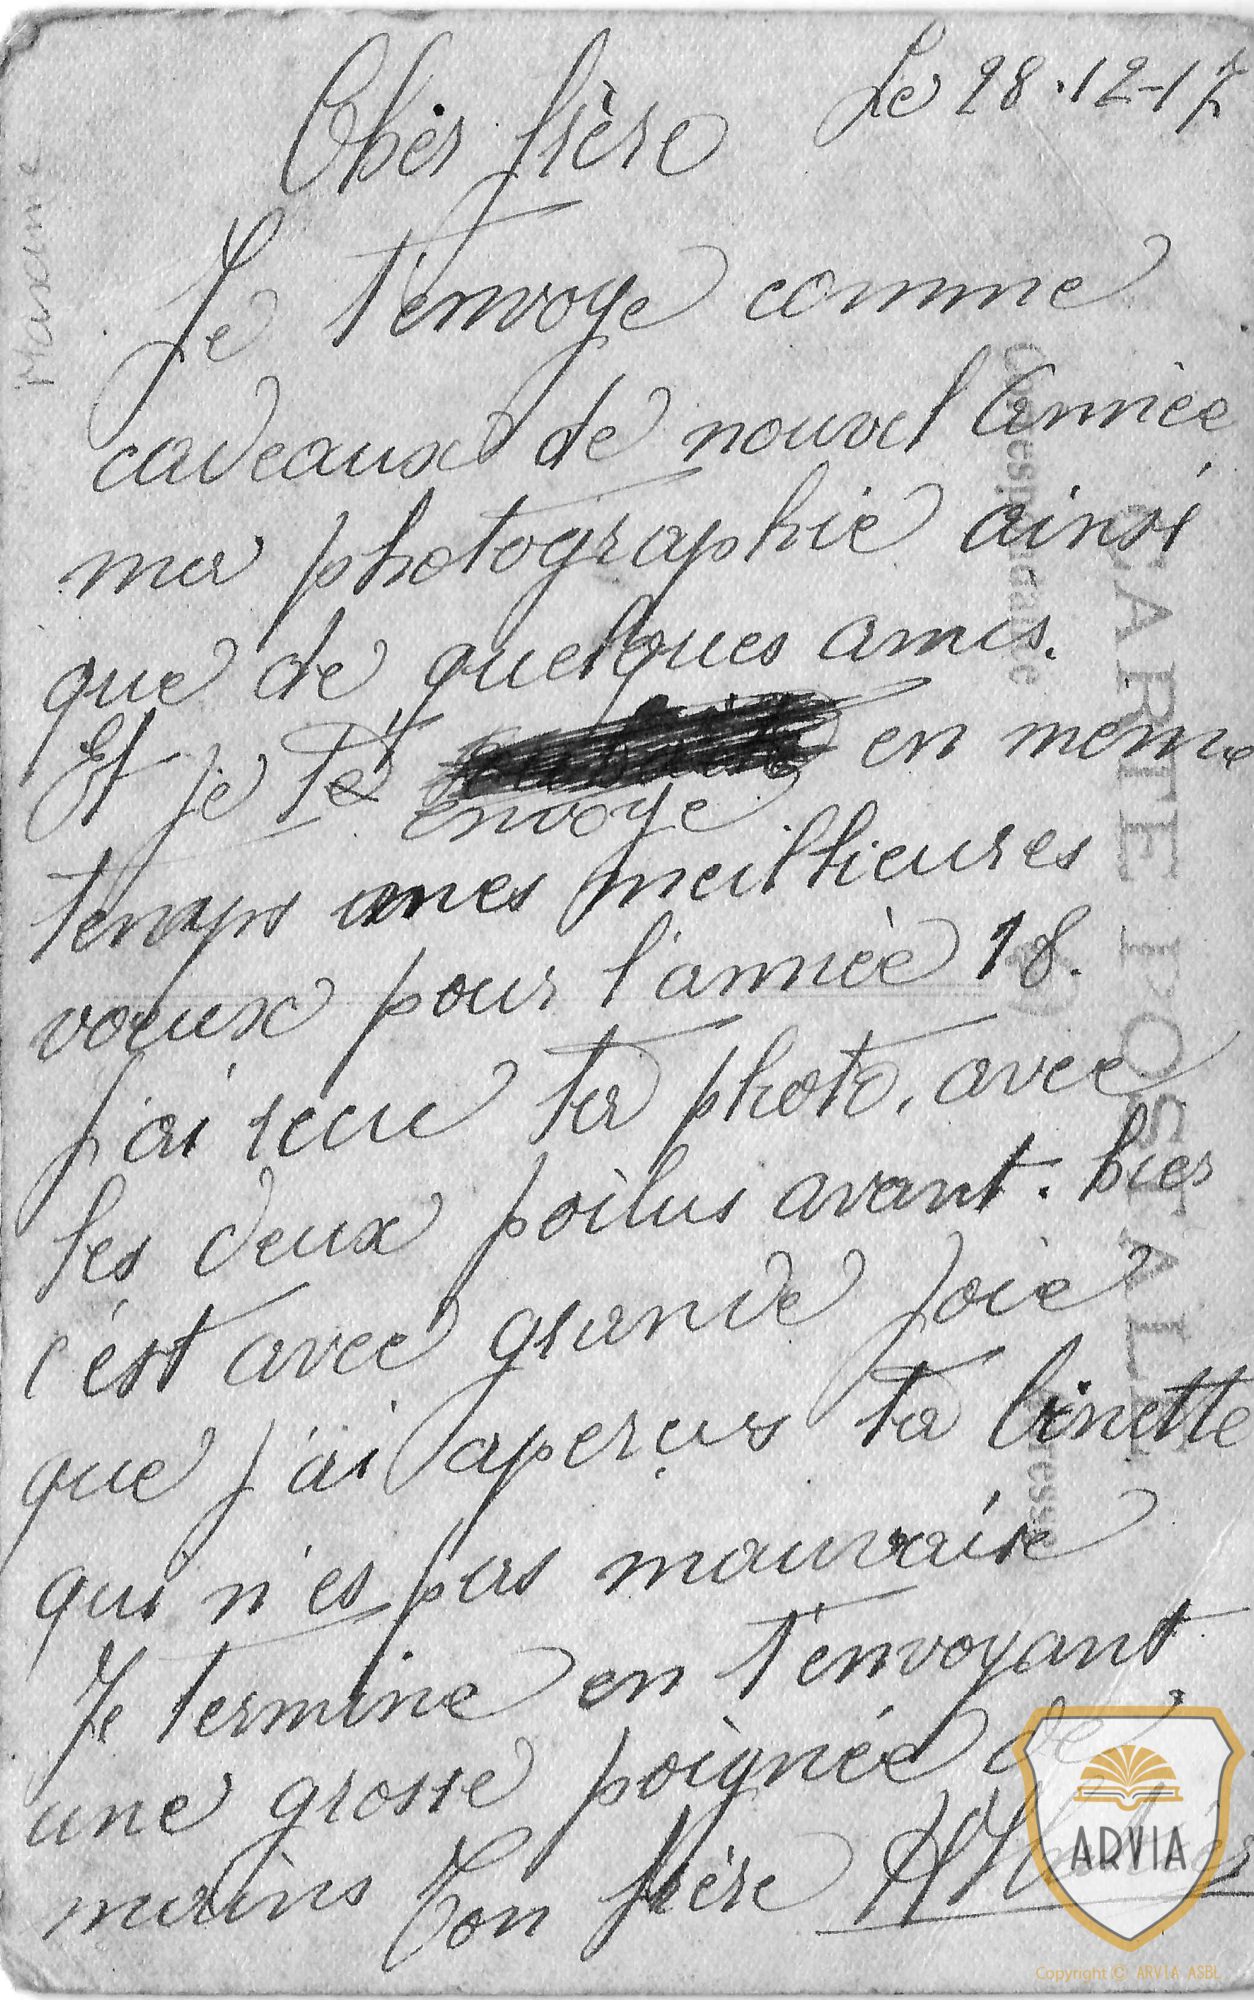 Le 28-12-17
Cher frère
Je t'envoye comme
cadeaux de nouvel année
ma photographie ainsi
que de quelques amis.
Et je te envoye en meme
temps mes meillieures
voeux pour l'année 18.
J'ai recue ta photo, avec
les deux poilus avant. hier
c'est avec grande joie
que j'ai aperçus ta binette
qui n'es pas mauvaise
Je termine en t'envoyant
une grosse poignée de
mains Ton frère
Maxime
CARTE POSTALE
Correspondance
Adresse
ARVIA
Copyright © ARVIA ASBL